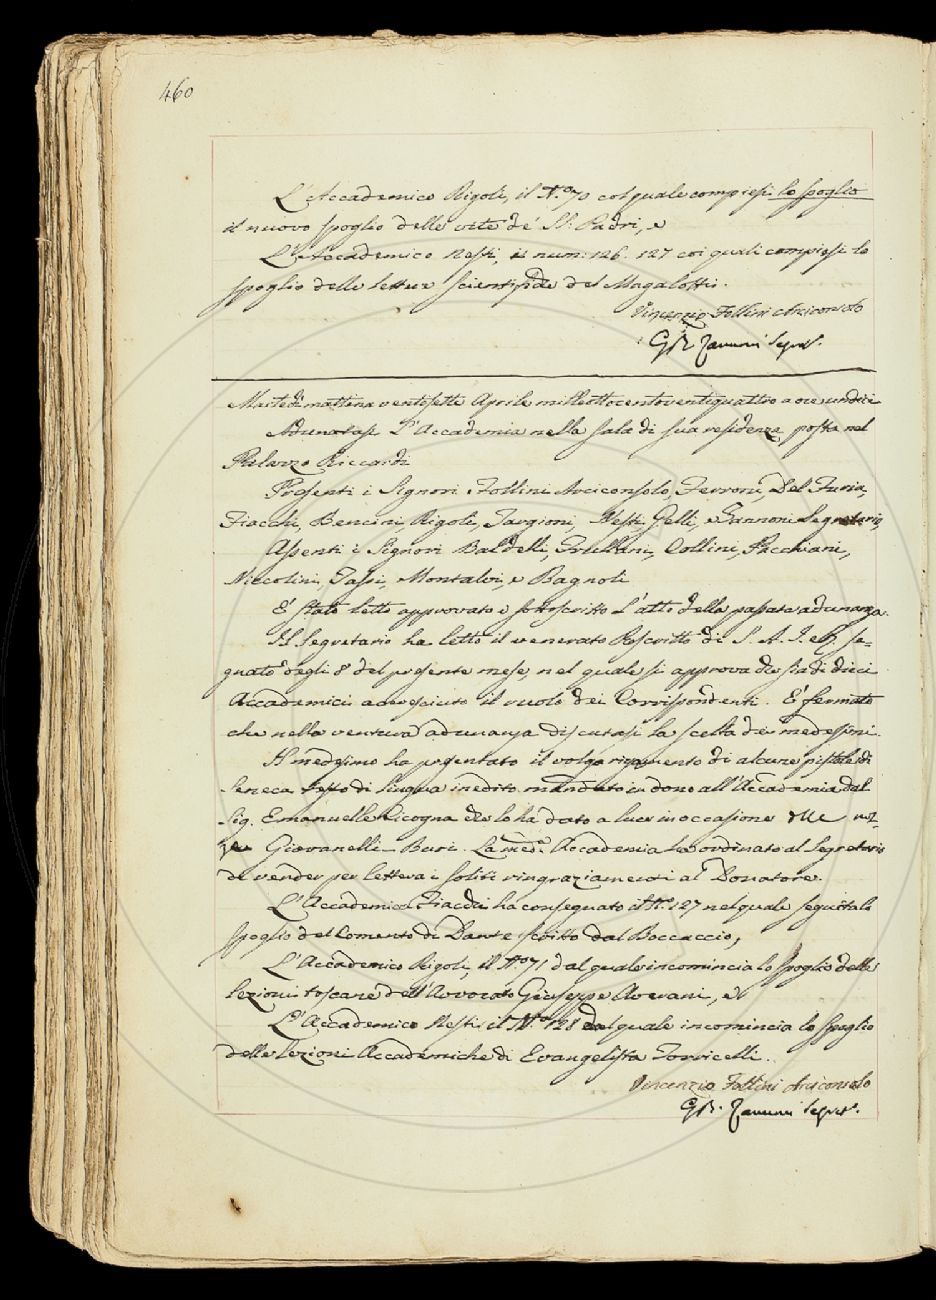 460
L'Accademico Rigoli, il N.º 70 col quale compiesi lo spoglio
il nuovo spoglio delle vite de' SS. Padri, e
L'Accademico Nesti, i num. 126. 127 coi quali compiesi lo
spoglio delle lettere scientifiche del Magalotti.
Vincenzio Follini Arciconsolo
G B Zannoni Segret.
Martedì mattina ventisette Aprile milleottocentoventiquattro a ore undici
Adunatasi L'Accademia nella sala di sua residenza posta nel
Palazzo Riccardi
Presenti i Signori Follini Arciconsolo, Ferroni, Del Furia,
Fiacchi, Bencini, Rigoli, Targioni, Nesti, Gelli, e Zannoni Segretario,
Assenti i Signori Baldelli, Frullani, Collini, Pacchiani,
Niccolini, Tassi, Montalvi, e Bagnoli
E' stato letto approvato e sottoscritto l'atto della passata adunanza.
Il Segretario ha letto il venerato Rescritto di S. A. I. e R. se=
gnato degli 8 del presente mese, nel quale si approva che sia di dieci
Accademici accresciuto il ruolo dei Corrispondenti. E' fermato
che nella ventura adunanza discutasi la scelta dei medesimi.
Il medesimo ha presentato il volgarizzamento di alcune pistole di
Seneca testo di lingua inedito mandato in dono all'Accademia dal
Sig. Emanuelle Cicogna che lo ha dato a luce in occasione delle noz=
ze Giovanelli - Buri. La med.ª Accademia ha ordinato al Segretario
di render per lettera i soliti ringraziamenti al Donatore.
L'Accademico Fiacchi ha consegnato il N.º 127 nel quale seguita lo
spoglio del Comento di Dante scritto dal Boccaccio,
L'Accademico Rigoli, il N.º 71 dal quale incomincia lo spoglio delle
Lezioni toscane dell'Avvocato Giuseppe Averani, e
L'Accademico Nesti il N.º 128 dal quale incomincia lo spoglio
delle Lezioni Accademiche di Evangelista Torricelli.
Vincenzio Follini Arciconsolo
G B. Zannoni Segret.